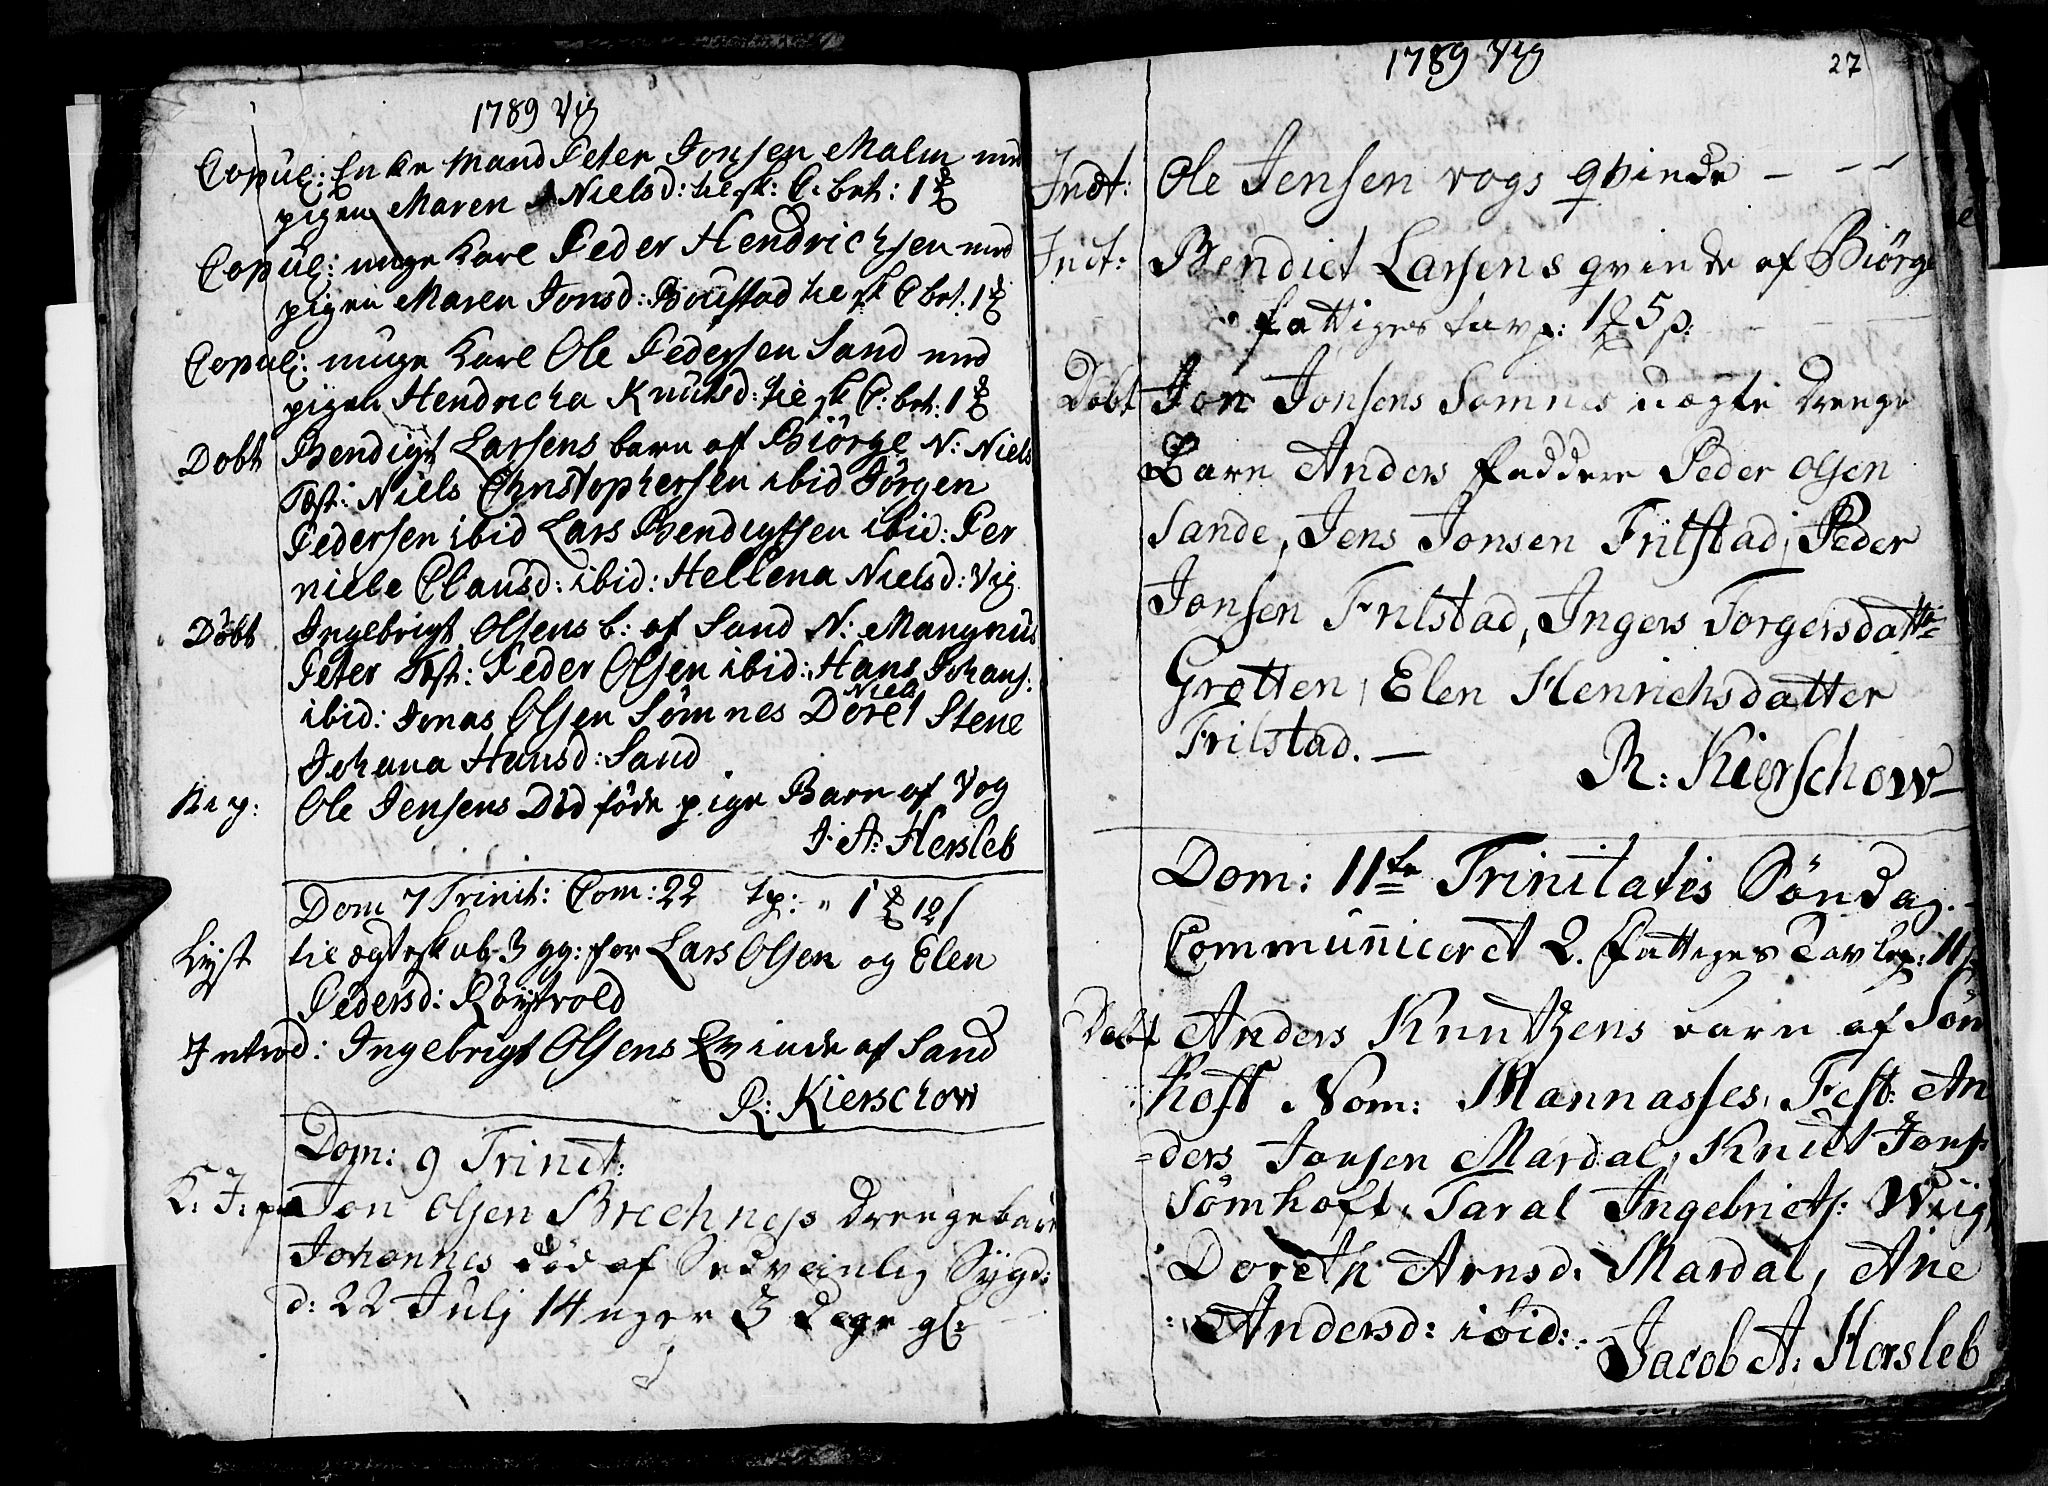 1789 Vig
Copul: Enke Mand Peter Jonsen Malm med
pigen Maren Nielsd: til sk: C. bet: 1
Copul: unge Karl Peder Hendrichsen med
pigen Maren Jonsd: Boustad til sk C bet: 1
Copul: unge Karl Ole Pedersen Sand med
pigen Hendricha Knutsd: til sk C: bet: 1
Dobt Bendigt Larsens barn af Biörge N: Niels
Test: Niels Christophersen ibid Jörgen
Pedersen ibid Lars Bendigtsen ibid: Per
nille Clausd: ibid: Hellena Nielsd: Vig
Döbt Ingebrigt Olsens b: af Sand N: Mangnus
Peter Test: Peder Olsen ibid: Hans Johans:
ibid: Jonas Olsen Sömnes Doret Niels Stene
Johana Hansd: Sand
Ole Jensens Död föde pige Barn af Vog
J: A: Hersleb
Dom 7 Trinit: Com: 22 tp: 1 12
Lyst til ægteskab 3 gg: for Lars Olsen og Elen
Pedersd: Röytvold
Introd: Ingebrigt Olsens Qvinde af Sand
R: Kierschow
Dom: 9 Trinit:
K. J. p Jon Olsen Brechness drengebarn
Johannes död af Sedvanlig Sygd:
d: 22 Julj 14 uger 3 dage gl:
1789 Vig 27
Indt: Ole Jensen vogs qvinde
Indt: Bendict Larsens qvinde af Biörge
fattiges tavp: 1 5
Dobt Jon Jonsens Somnes uægte Drenge
Barn Anders Faddere Peder Olsen
Sande, Jens Jonsen Frilstad, Peder
Jonsen Frilstad, Ingers Torgersdatter
Grotten, Elen Henrichsdatter
Frilstad.
R: Kierschow
Dom: 11te Trinitatis Söndag.
Communiceret 2. Fattiges Tavlep: 11
Dobt Anders Knutzens barn af Söm
hoft Nom: Mannasses, Test: An
ders Jonsen Mardal, Knut Jons:
Sömhoft, Taral Ingebricts: Wiig
Doreth Arnsd: Mardal, Ane
Andersd: ibid:
Jacob A. Hersleb